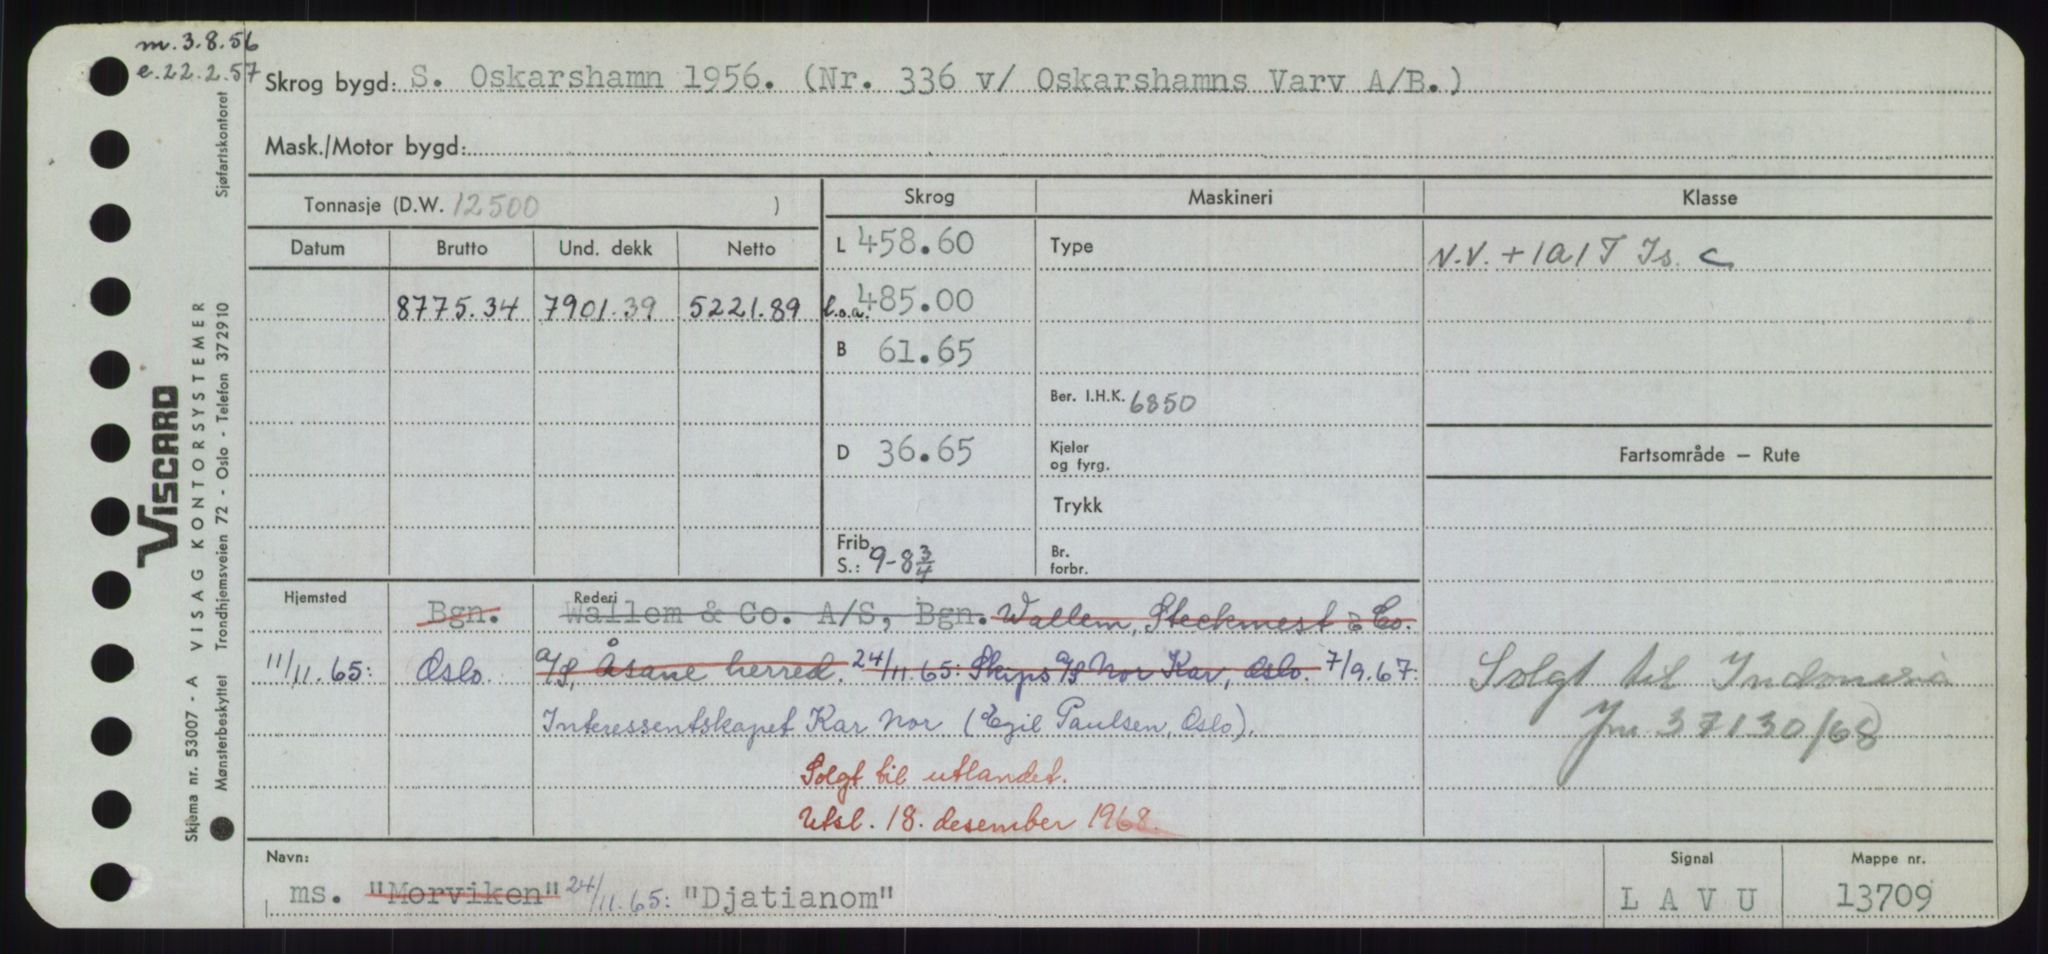 m. 3.8.56
e. 22.2.57
Skrog bygd: S. Oskarshamn 1956. (Nr. 336 v/ Oskarshamns Varv A/B.)
Mask./Motor bygd:
Tonnasje (D.W. 12500 )
Skrog Maskineri Klasse
Datum Brutto Und. dekk Netto
L 458.60 Type
N.V. +1A1 T Is. C
8775.34 7901.39 5221.89 l.o.a. 485.00
B 61.65
Ber. I.H.K. 6850
D 36.65 Kjeler og fyrg.
Fartsområde — Rute
Trykk
Frib. S.: 9-8 3/4 Br. forbr.
Hjemsted Rederi
Bgn. Wallem & Co. A/S, Bgn. Wallem, Steckmest & Co.
11/11.65: Oslo. A/S, Åsane herred. 24/11 65: Skips A/S Nor Kar, Oslo. 7/9.67:
Interessentskapet Kar Nor (Egil Paulsen, Oslo).
Solgt til utlandet.
Utsl. 18. desember 1968.
Solgt til Indonesia
Jnr 37130/68
Navn: Signal Mappe nr.
ms. "Morviken" 24/11.65: "Djatianom" L A V U 13709
VISCARD
VISAG KONTORSYSTEMER
Sjøfartskontoret
Skjema nr. 53007 - A
Mønsterbeskyttet Trondhjemsveien 72 - Oslo - Telefon 372910